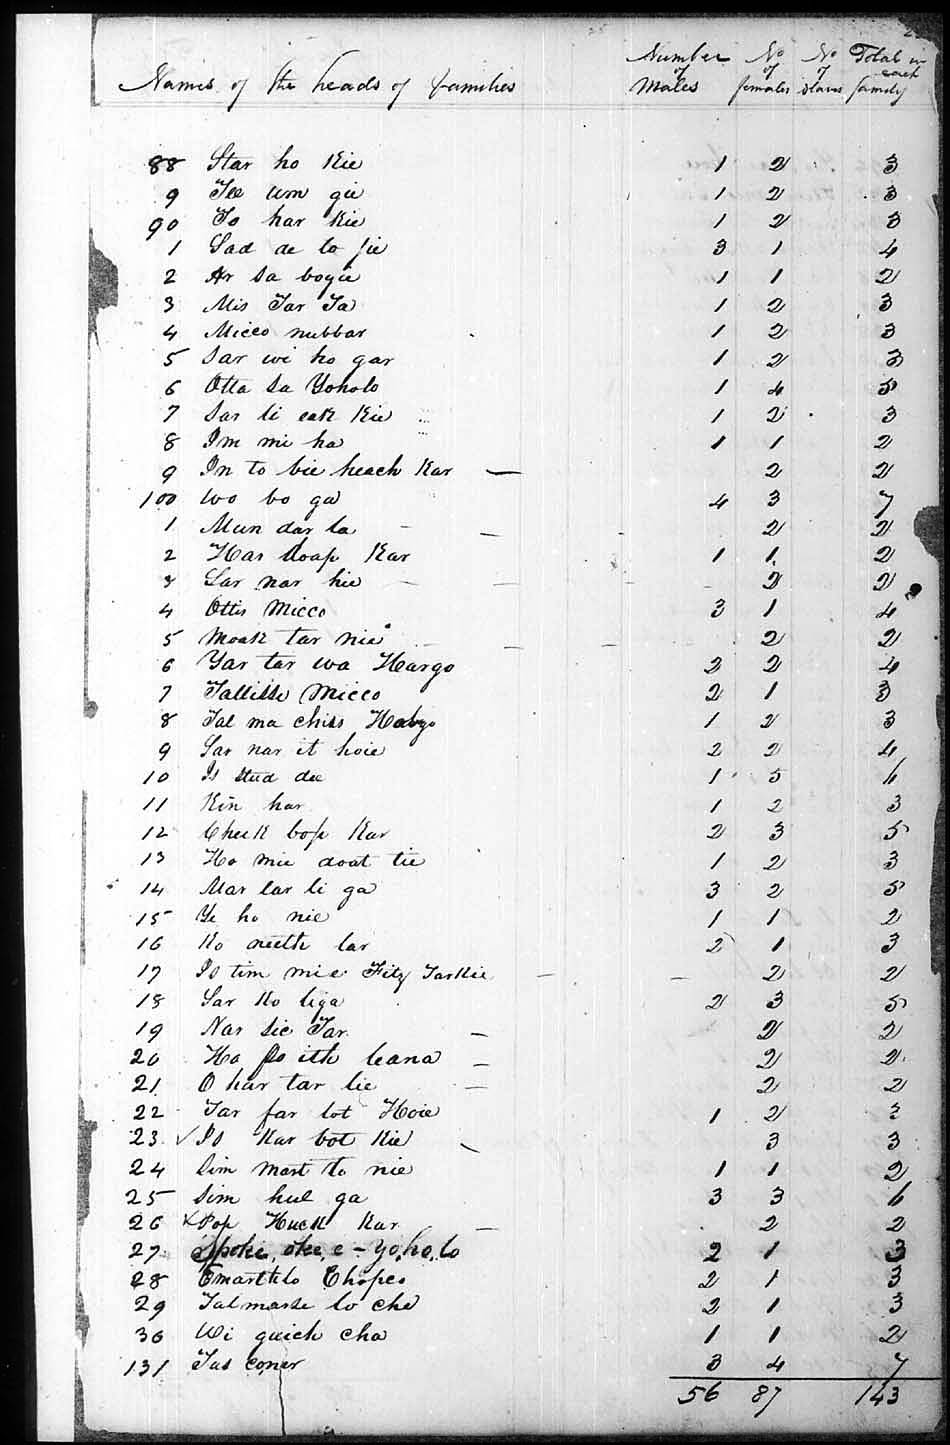 Names of the heads of families Number of Males No of females No of slaves Total in each family
88 Star ho Kie 1 2 3
9 Tee um gie 1 2 3
90 To har Kie 1 2 3
1 Sad de lo jie 3 1 4
2 Ar sa bogie 1 1 2
3 Mis Tar Ta 1 2 3
4 Micco nubbar 1 2 3
5 Sar wi ho gar 1 2 3
6 Otta sa Yoholo 1 4 5
7 Sar li eak Kie 1 2 3
8 Im mi ha 1 1 2
9 In to bie heach Kar — 2 2
100 Wo bo ga 4 3 7
1 Mun dar la - - 2 2
2 Har doap Kar 1 1 2
3 Sar nar hie - - - 2 2
4 Ottis Micco 3 1 4
5 Moak tar nie - - - 2 2
6 Yar tar wa Hargo 2 2 4
7 Tallisse Micco 2 1 3
8 Tal ma chiss 1 2 3
9 Sar nar it hoie 2 2 4
10 Is dee 1 5 6
11 Kin har 1 2 3
12 Check bop Kar 2 3 5
13 Ho mie doat tie 1 2 3
14 Mar lar li ga 3 2 5
15 Ye ho nie 1 1 2
16 Ko neith lar 2 1 3
17 Is tim mie Fity Tarkie — - 2 2
18 Sar Ko liga 2 3 5
19 Nar sie Tar - 2 2
20 Ho po ith leana - 2 2
21 O har tar lie - 2 2
22 Tar far lot Hoie 1 2 3
23 ✓ Is Kar bot Kie - 3 3
24 Sim mart to nie 1 1 2
25 Sim hul ga 3 3 6
26 x Pop Huck Kar - 2 2
27 Spoke, oke, e - Yo, ho, lo 2 1 3
28 Emarthlo Chopco 2 1 3
29 Talmarse lo che 2 1 3
30 Wi quich cha 1 1 2
131 Tus coner 3 4 7
56 87 143